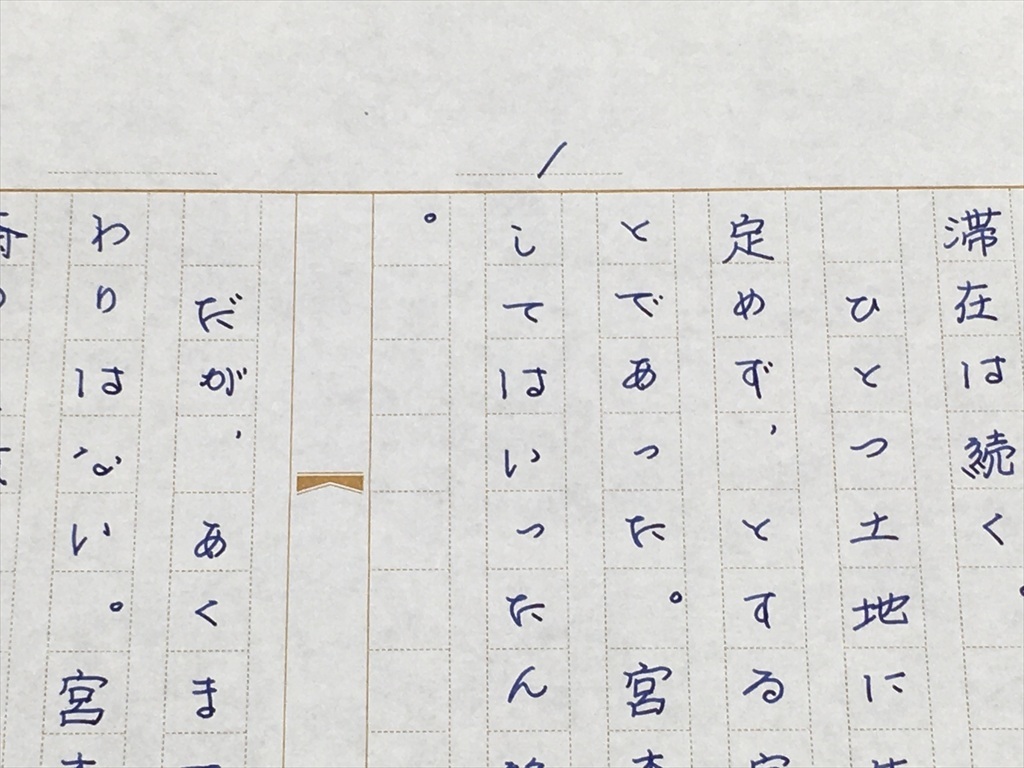 滞在は続く
ひとつ土地に
定めず、とする
とであった。宮
してはいったん
。
だが、あくま
わりはない。宮
/